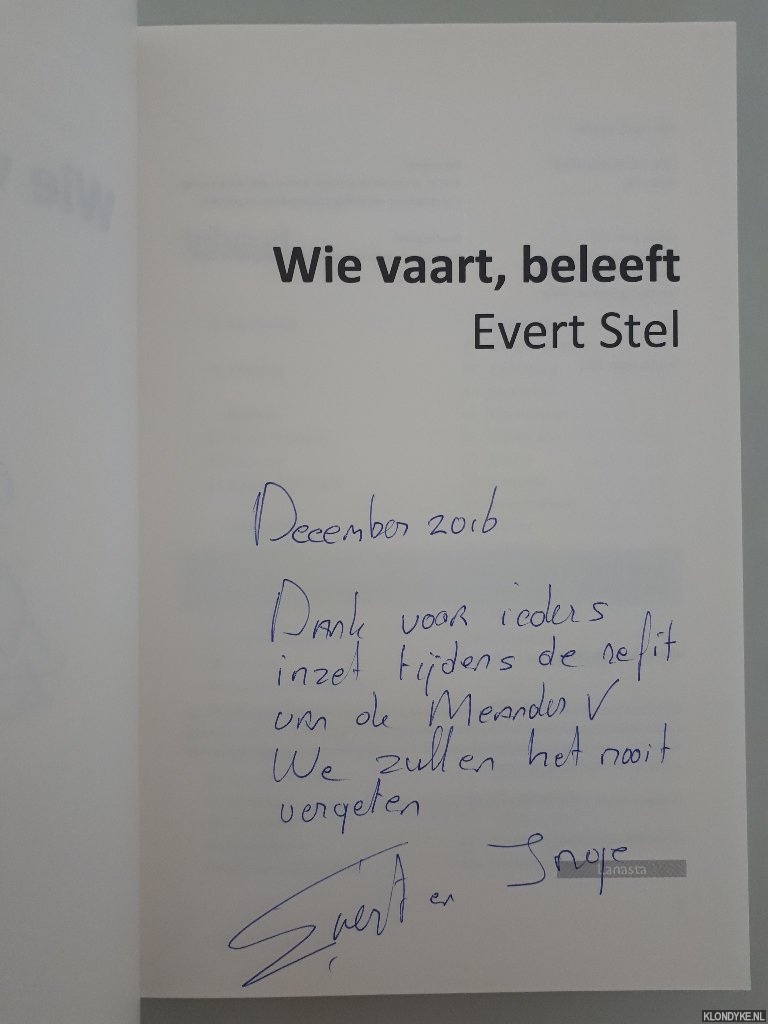 Wie vaart, beleeft
Evert Stel
December 2016
Dank voor ieders
inzet tijdens de refit
van de Meander V
We zullen het nooit
vergeten
Evert en Inge
Lanasta
KLONDYKE.NL